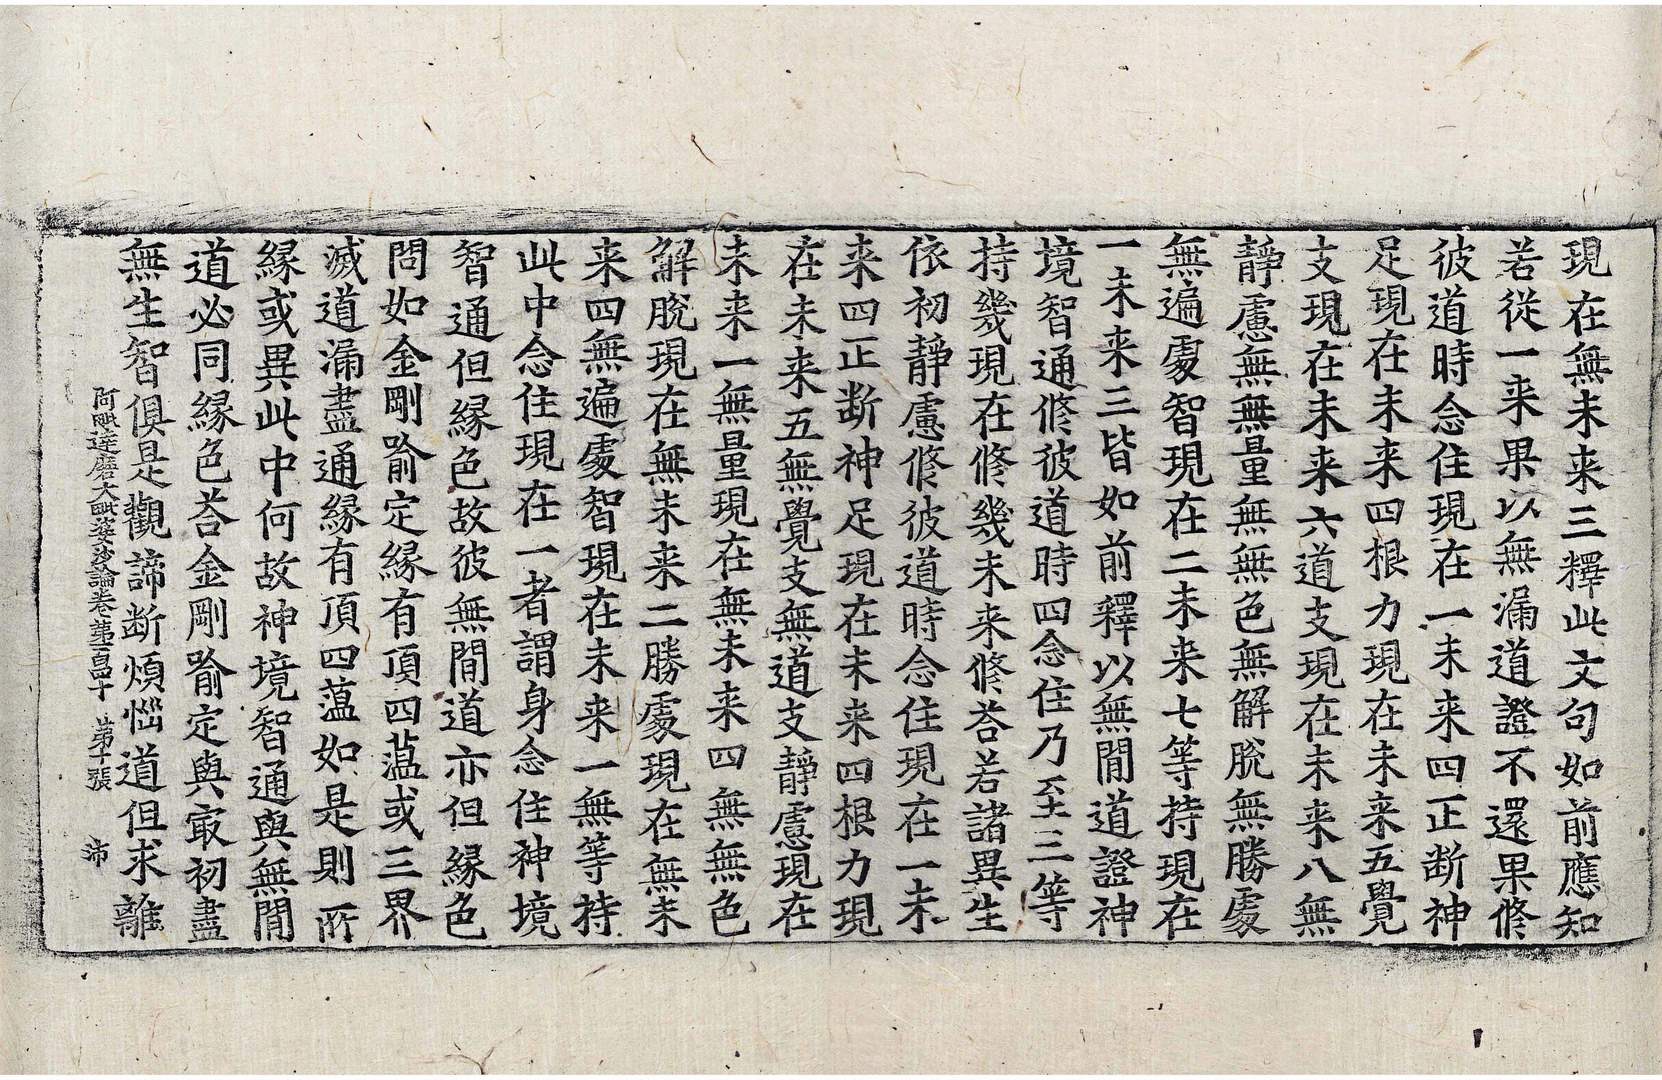 現在無未来三釋此文句如前應知
若從一来果以無漏道證不還果修
彼道時念住現在一未来四正断神
足現在未来四根力現在未来五覺
支現在未来六道支現在未来八無
靜慮無無量無無色無解脫無勝處
無遍處智現在二未来七等持現在
一未来三皆如前釋以無閒道證神
境智通修彼道時四念住乃至三等
持幾現在修幾未来修荅若諸異生
依初靜慮修彼道時念住現在一未
来四正断神足現在未来四根力現
在未来五無覺支無道支靜慮現在
未来一無量現在無未来四無無色
解脫現在無未来二勝處現在無未
来四無遍處智現在未来一無等持
此中念住現在一者謂身念住神境
智通但縁色故彼無閒道亦但縁色
問如金剛喻定縁有頂四蕰或三界
滅道漏盡通縁有頂四蕰如是則所
縁或異此中何故神境智通與無閒
道必同縁色荅金剛喻定與㝡初盡
無生智俱是觀諦断煩惱道但求離
阿毗達磨大毗婆沙論卷第一百四十 第十張 沛